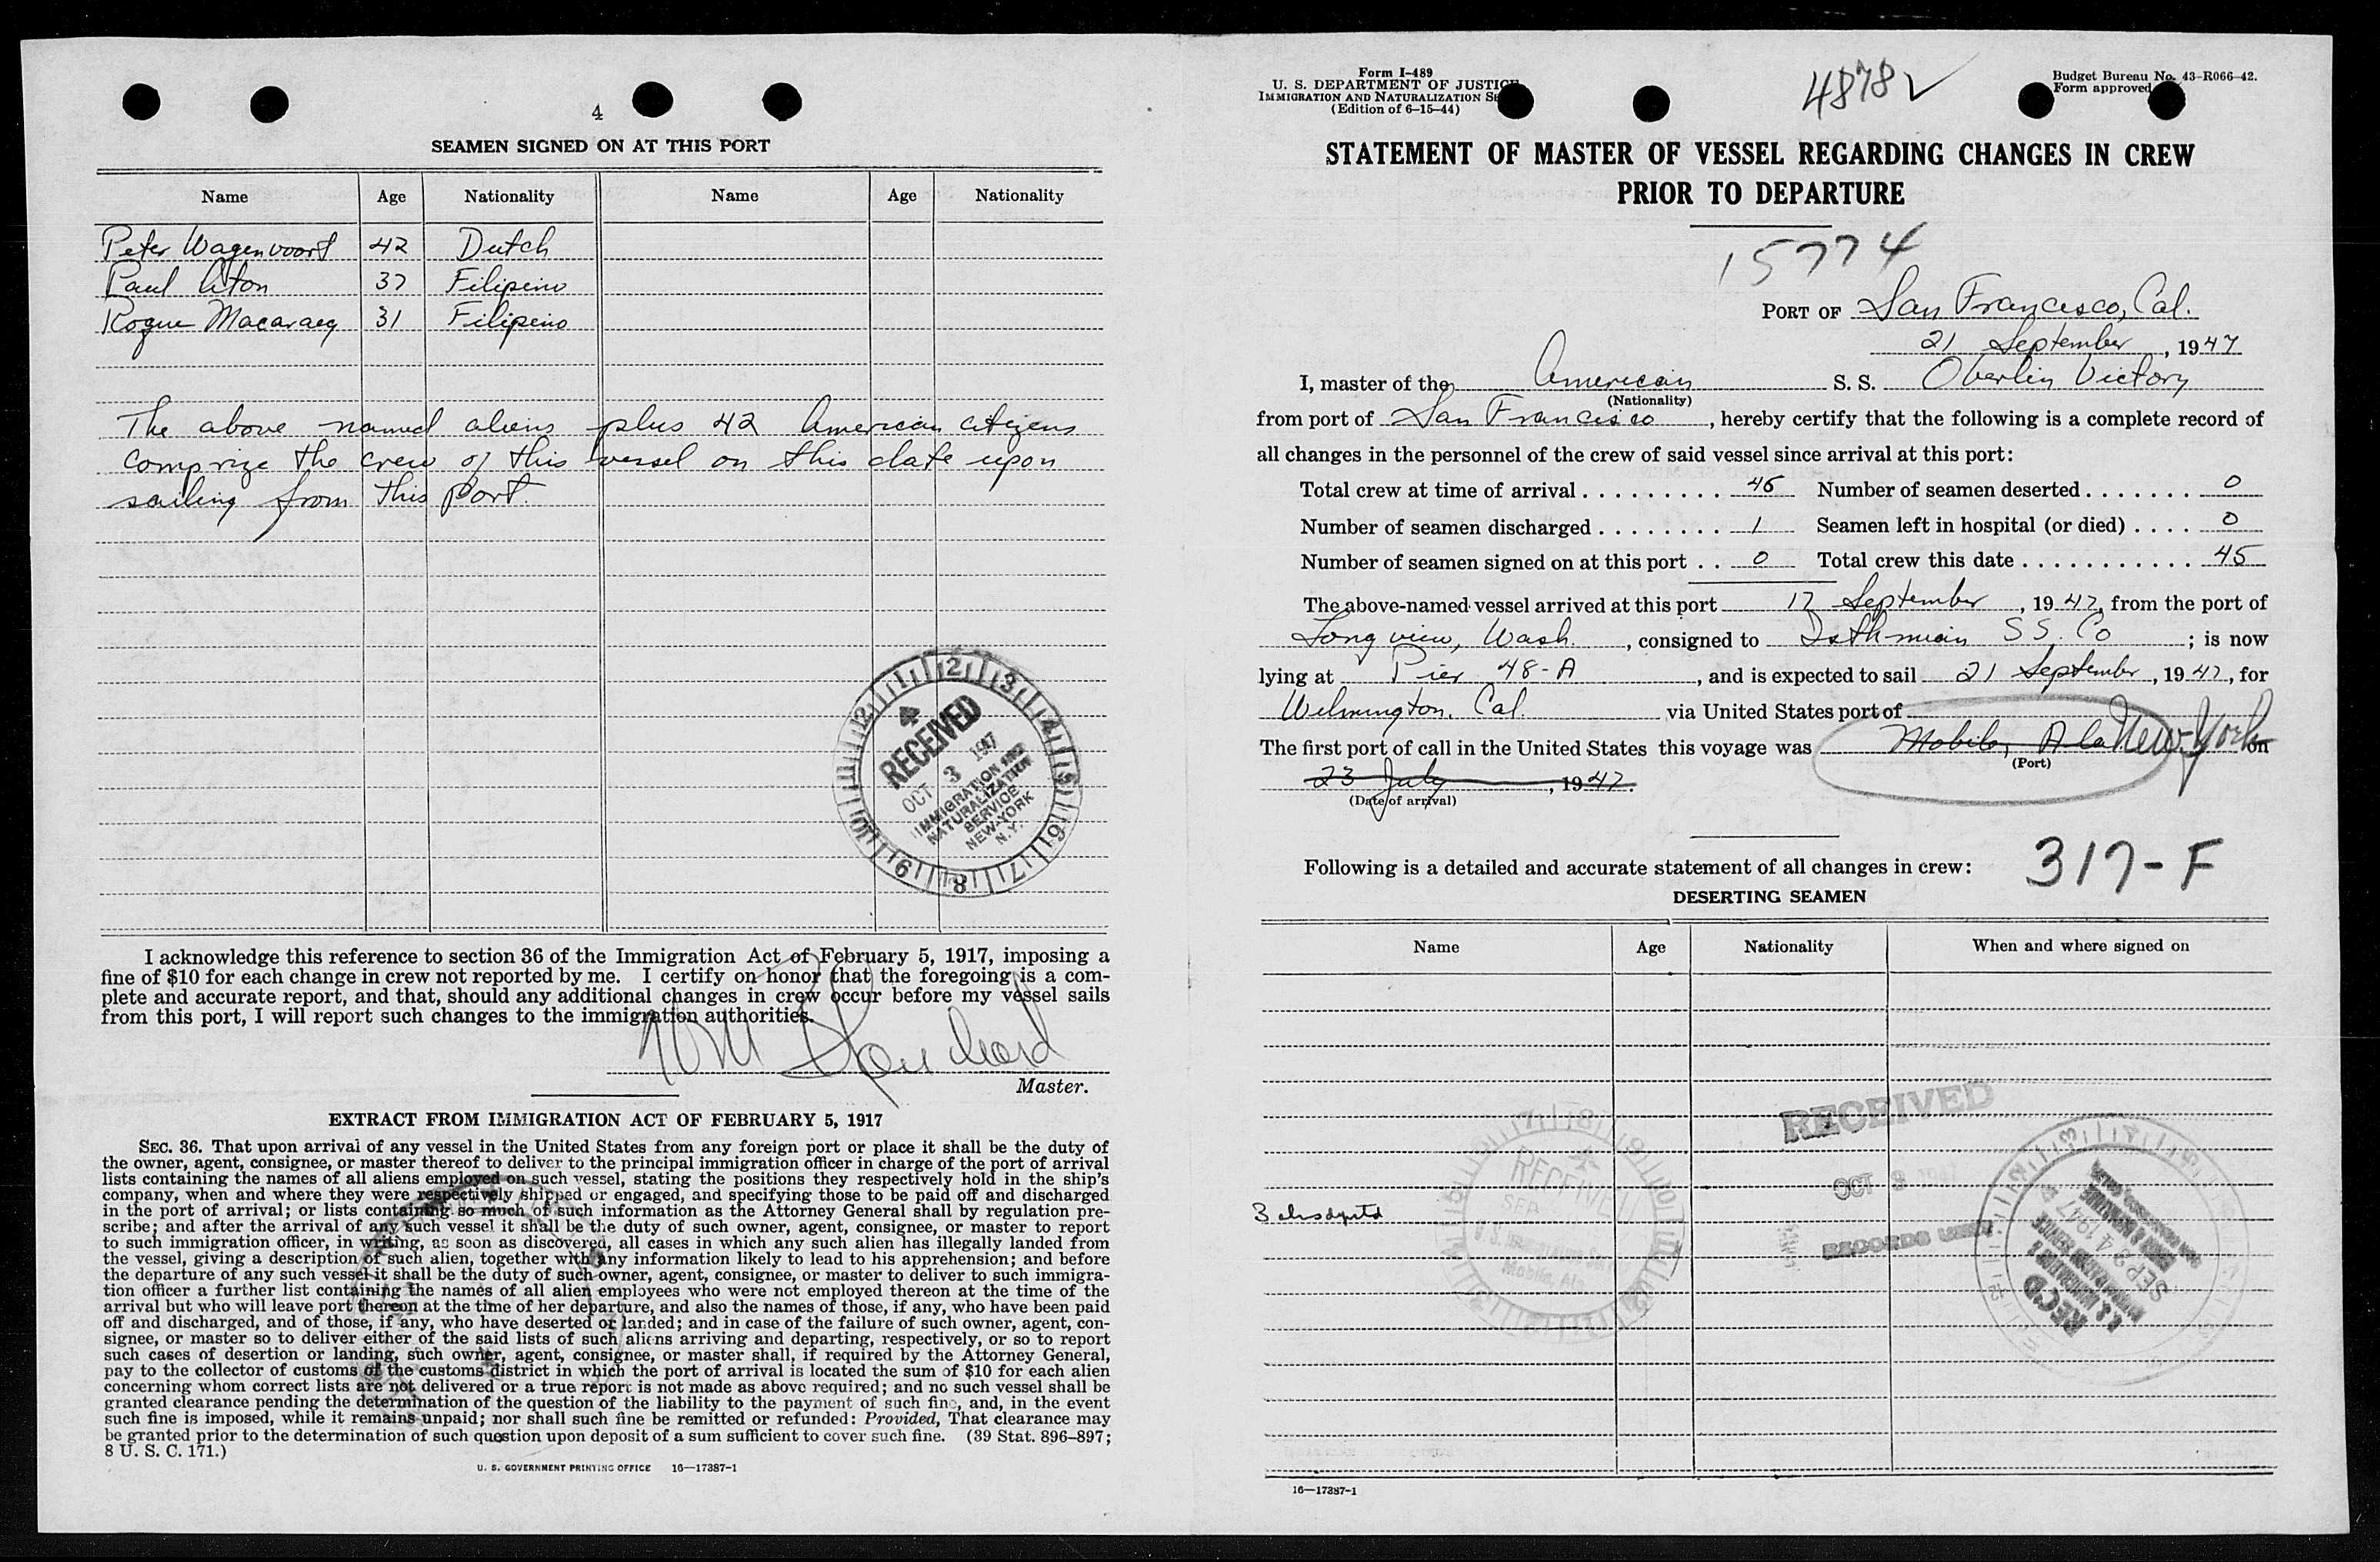 4
SEAMEN SIGNED ON AT THIS PORT
Name Age Nationality Name Age Nationality
Peter Wagenvoort 42 Dutch
Paul Aton 37 Filipino
Roque Macaraeg 31 Filipino
The above named aliens plus 42 American citizens
comprize the crew of this vessel on this date upon
sailing from this port.
RECEIVED
OCT 3 1947
IMMIGRATION AND
NATURALIZATION
SERVICE
NEW-YORK
N.Y.
I acknowledge this reference to section 36 of the Immigration Act of February 5, 1917, imposing a
fine of $10 for each change in crew not reported by me. I certify on honor that the foregoing is a com-
plete and accurate report, and that, should any additional changes in crew occur before my vessel sails
from this port, I will report such changes to the immigration authorities.
Master.
EXTRACT FROM IMMIGRATION ACT OF FEBRUARY 5, 1917
SEC. 36. That upon arrival of any vessel in the United States from any foreign port or place it shall be the duty of
the owner, agent, consignee, or master thereof to deliver to the principal immigration officer in charge of the port of arrival
lists containing the names of all aliens employed on such vessel, stating the positions they respectively hold in the ship's
company, when and where they were respectively shipped or engaged, and specifying those to be paid off and discharged
in the port of arrival; or lists containing so much of such information as the Attorney General shall by regulation pre-
scribe; and after the arrival of any such vessel it shall be the duty of such owner, agent, consignee, or master to report
to such immigration officer, in writing, as soon as discovered, all cases in which any such alien has illegally landed from
the vessel, giving a description of such alien, together with any information likely to lead to his apprehension; and before
the departure of any such vessel it shall be the duty of such owner, agent, consignee, or master to deliver to such immigra-
tion officer a further list containing the names of all alien employees who were not employed thereon at the time of the
arrival but who will leave port thereon at the time of her departure, and also the names of those, if any, who have been paid
off and discharged, and of those, if any, who have deserted or landed; and in case of the failure of such owner, agent, con-
signee, or master so to deliver either of the said lists of such aliens arriving and departing, respectively, or so to report
such cases of desertion or landing, such owner, agent, consignee, or master shall, if required by the Attorney General,
pay to the collector of customs of the customs district in which the port of arrival is located the sum of $10 for each alien
concerning whom correct lists are not delivered or a true report is not made as above required; and no such vessel shall be
granted clearance pending the determination of the question of the liability to the payment of such fine, and, in the event
such fine is imposed, while it remains unpaid; nor shall such fine be remitted or refunded: Provided, That clearance may
be granted prior to the determination of such question upon deposit of a sum sufficient to cover such fine. (39 Stat. 896–897;
8 U. S. C. 171.)
U. S. GOVERNMENT PRINTING OFFICE 16—17387-1
Form I-489
U. S. DEPARTMENT OF JUSTICE
IMMIGRATION AND NATURALIZATION SE
(Edition of 6-15-44)
4878
Budget Bureau No. 43-R066-42.
Form approved
STATEMENT OF MASTER OF VESSEL REGARDING CHANGES IN CREW
PRIOR TO DEPARTURE
15774
PORT OF San Francisco, Cal.
21 September, 1947
I, master of the American S. S. Oberlin Victory
(Nationality)
from port of San Francisco, hereby certify that the following is a complete record of
all changes in the personnel of the crew of said vessel since arrival at this port:
Total crew at time of arrival . . . . . . . . . . 46 Number of seamen deserted . . . . . . . 0
Number of seamen discharged . . . . . . . . 1 Seamen left in hospital (or died) . . . . 0
Number of seamen signed on at this port . . 0 Total crew this date . . . . . . . . . . . 45
The above-named vessel arrived at this port 17 September, 1947, from the port of
Longview, Wash., consigned to Isthmian SS. Co; is now
lying at Pier 48-A, and is expected to sail 21 September, 1947, for
Wilmington, Cal. via United States port of
The first port of call in the United States this voyage was Mobile, Ala New York on
(Port)
23 July, 1947.
(Date of arrival)
Following is a detailed and accurate statement of all changes in crew: 317-F
DESERTING SEAMEN
Name Age Nationality When and where signed on
RECEIVED
OCT 3 1947
RECORDS UNIT
RECEIVED
SEP
Mobile, Ala.
REC'D
SEP 24 1947
16—17387-1